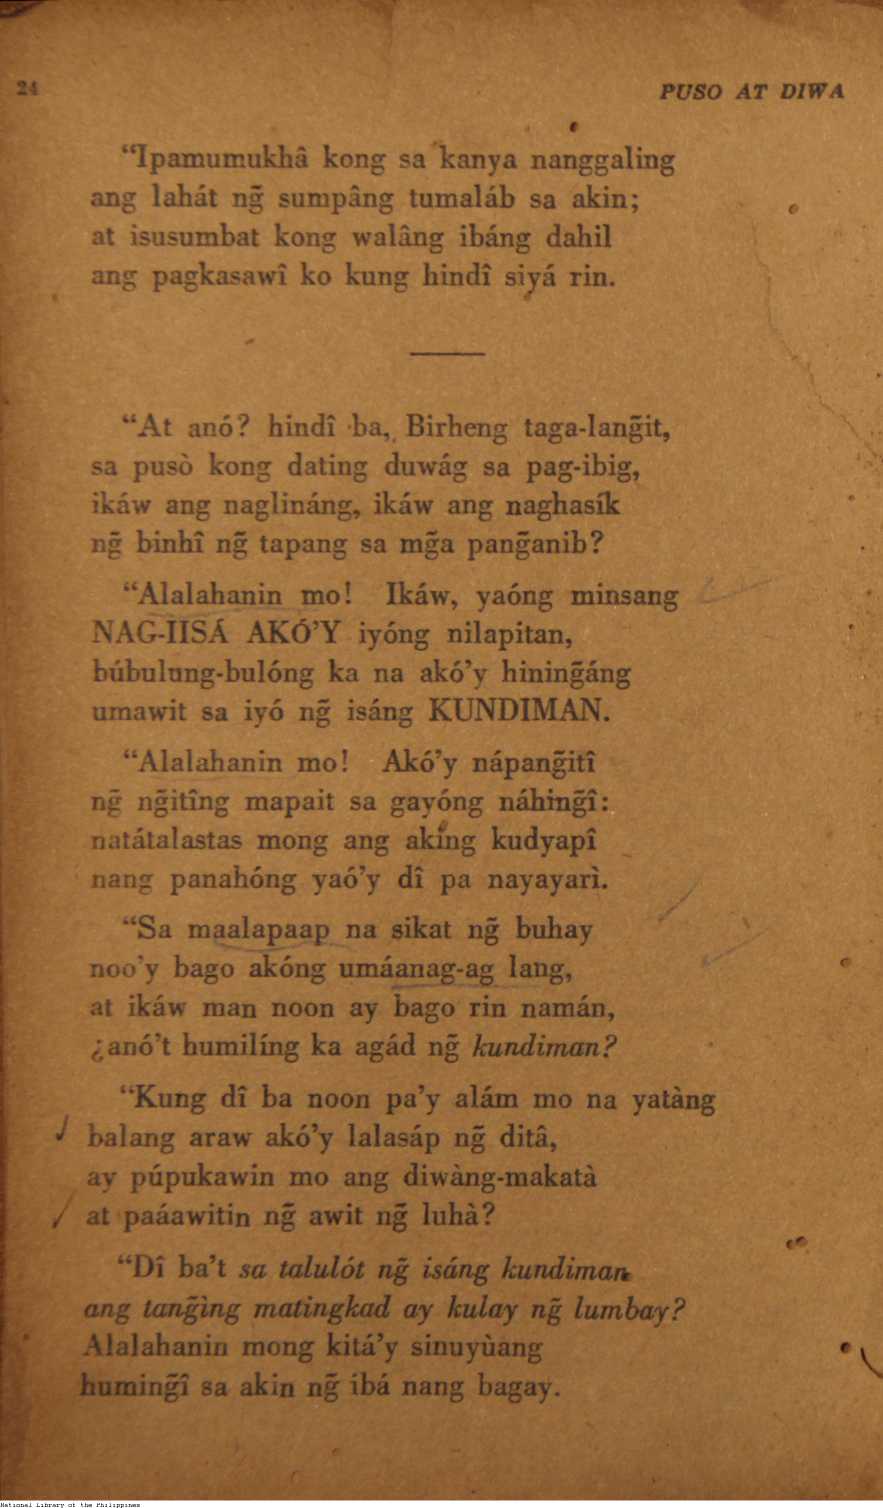 24
PUSO AT DIWA
“Ipamumukhâ kong sa kanya nanggaling
ang lahát ng̃ sumpâng tumaláb sa akin;
at isusumbat kong walâng ibáng dahil
ang pagkasawî ko kung hindî siyá rin.
“At anó? hindî ba, Birheng taga-lang̃it,
sa pusò kong dating duwág sa pag-ibig,
ikáw ang naglináng, ikáw ang naghasík
ng̃ binhî ng̃ tapang sa mg̃a pang̃anib?
“Alalahanin mo! Ikáw, yaóng minsang
NAG-IISÁ AKÓ’Y iyóng nilapitan,
búbulung-bulóng ka na akó’y hining̃áng
umawit sa iyó ng̃ isáng KUNDIMAN.
“Alalahanin mo! Akó’y nápang̃itî
ng̃ ng̃itîng mapait sa gayóng náhing̃î:
natátalastas mong ang akíng kudyapî
nang panahóng yaó’y dî pa nayayarì.
“Sa maalapaap na sikat ng̃ buhay
noo’y bago akóng umáanag-ag lang,
at ikáw man noon ay bago rin namán,
¿anó’t humilíng ka agád ng̃ kundiman?
“Kung dî ba noon pa’y alám mo na yatàng
balang araw akó’y lalasáp ng̃ ditâ,
ay púpukawin mo ang diwàng-makatà
at paáawitin ng̃ awit ng̃ luhà?
“Dî ba’t sa talulót ng̃ isáng kundiman
ang tang̃ìng matingkad ay kulay ng̃ lumbay?
Alalahanin mong kitá’y sinuyùang
huming̃î sa akin ng̃ ibá nang bagay.
National Library of the Philippines